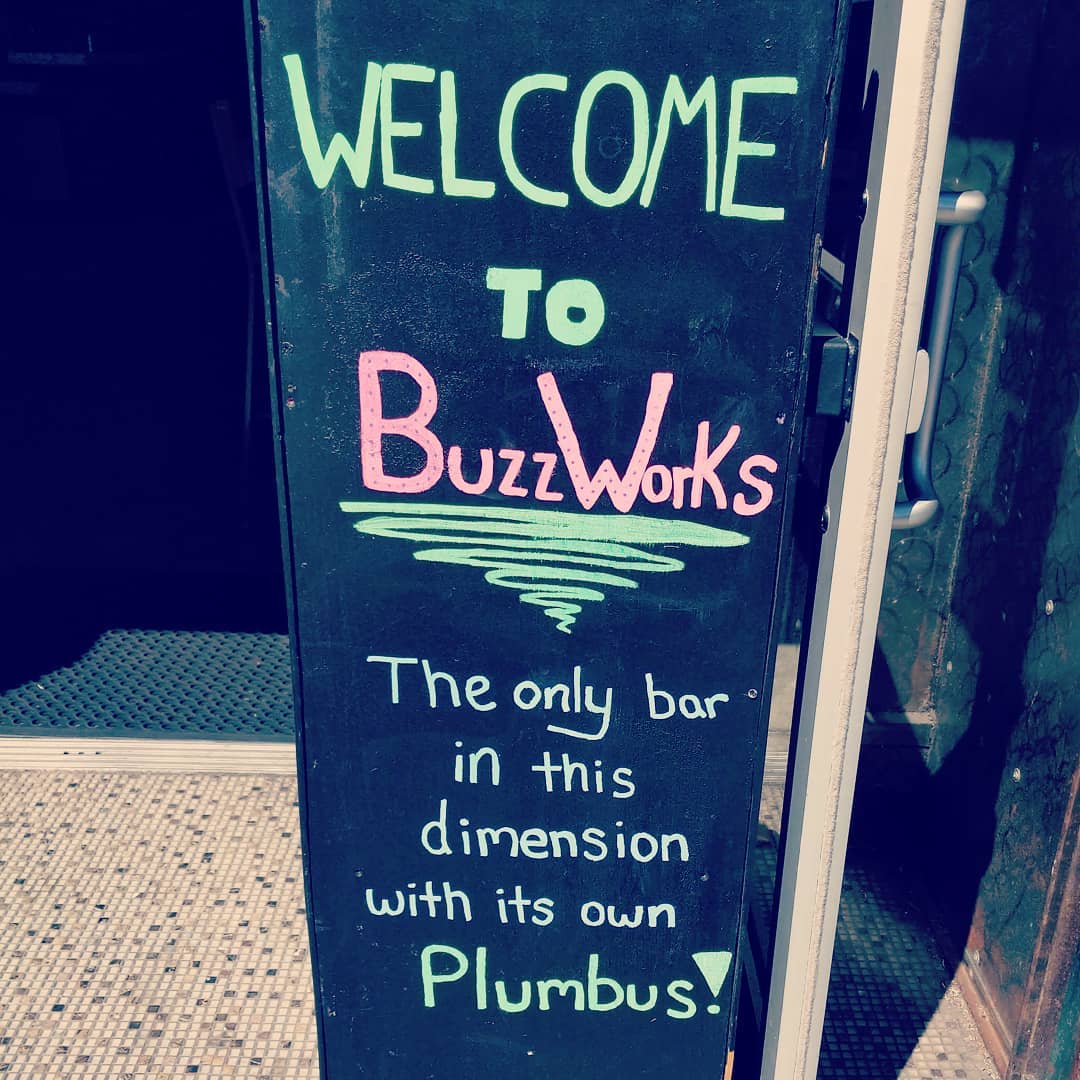 WELCOME
TO
BUZZWORKS
The only bar
in this
dimension
with its own
Plumbus!